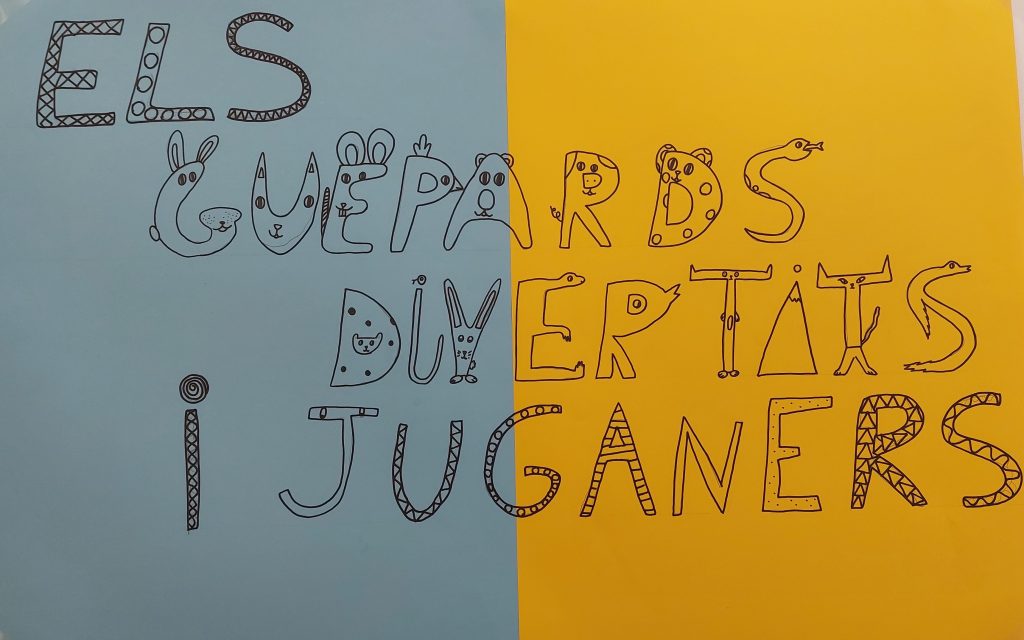 ELS
GUEPARDS
DIVERTITS
i JUGANERS